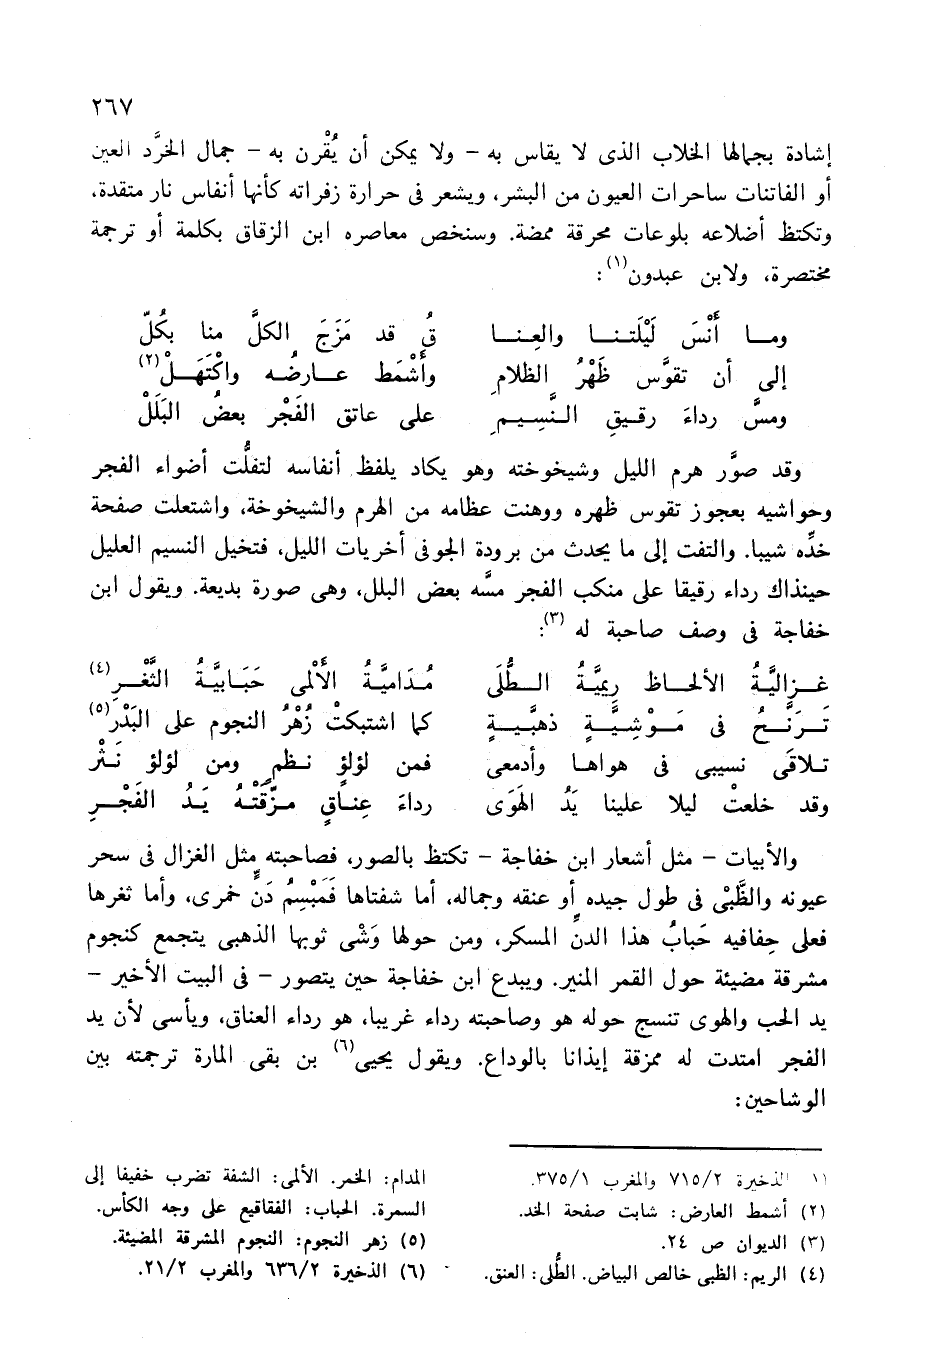 ٢٦٧
إشادة بجمالها الخلاب الذى لا يقاس به – ولا يمكن أن يُقْرن به – جمال الخرَّد العين
أو الفاتنات ساحرات العيون من البشر، ويشعر فى حرارة زفراته كأنها أنفاس نار متقدة،
وتكتظ أضلاعه بلوعات محرقة ممضة. وسنخص معاصره ابن الزقاق بكلمة أو ترجمة
مختصرة، ولابن عبدون(١):
ومـا أَنْسَ لَيْلَتـنـا والعِنـا قُ قد مَزَجَ الكلَّ منا بكُلّ
إلى أن تقوَّس ظَهْرُ الظلامِ وأَشْمَط عـارضُـه واكْتَهَـلْ(٢)
ومسَّ رداءَ رقيـقِ النَّسِيـمِ على عاتق الفَجْر بعضُ البَلَلْ
وقد صوَّر هرم الليل وشيخوخته وهو يكاد يلفظ أنفاسه لتفلُّت أضواء الفجر
وحواشيه بعجوز تقوس ظهره ووهنت عظامه من الهرم والشيخوخة، واشتعلت صفحة
خدِّه شيبا. والتفت إلى ما يحدث من برودة الجو فى أخريات الليل، فتخيل النسيم العليل
حينذاك رداء رقيقا على منكب الفجر مسَّه بعض البلل، وهى صورة بديعة. ويقول ابن
خفاجة فى وصف صاحبة له (٣):
غـزاليَّـةُ الألحـاظ رِيميَّـةُ الـطُّلَى مُـدَاميَّـةُ الأَلْمى حَبَـابيَّـةُ الثَّغْـرِ(٤)
تـرَنَّـحُ فى مَـوْشِيَّـةٍ ذهبَّيـةٍ كما اشتبكتْ زُهْرُ النجوم على البَدْرِ(٥)
تـلاقَى نسيبى فى هواهـا وأدمعى فمن لؤلؤٍ نـظمٍ ومن لؤلؤ نَـثْرِ
وقد خلعتْ ليلا علينا يَدُ الهَوَى رداءَ عِنـاقٍ مـزَّقَتْـهُ يَـدُ الفَجْـرِ
والأبيات – مثل أشعار ابن خفاجة – تكتظ بالصور، فصاحبته مثل الغزال فى سحر
عيونه والظَّبْى فى طول جيده أو عنقه وجماله، أما شفتاها فَمَبْسِمُ دَنٍّ خمرى، وأما ثغرها
فعلى حِفافيه حَبابُ هذا الدنِّ المسكر، ومن حولها وَشْى ثوبها الذهبى يتجمع كنجوم
مشرقة مضيئة حول القمر المنير. ويبدع ابن خفاجة حين يتصور – فى البيت الأخير –
يد الحب والهوى تنسج حوله هو وصاحبته رداء غريبا، هو رداء العناق، ويأسى لأن يد
الفجر امتدت له ممزقة إيذانا بالوداع. ويقول يحيى(٦) بن بقى المارة ترجمته بين
الوشاحين:
(١) الذخيرة ٧١٥/٢ والمغرب ٣٧٥/١.
(٢) أشمط العارض: شابت صفحة الخد.
(٣) الديوان ص ٢٤.
(٤) الريم: الظبى خالص البياض. الطُّلى: العنق.
المدام: الخمر. الألمى: الشفة تضرب خفيفا إلى
السمرة. الحباب: الفقاقيع على وجه الكأس.
(٥) زهر النجوم: النجوم المشرقة المضيئة.
(٦) الذخيرة ٦٣٦/٢ والمغرب ٢١/٢.